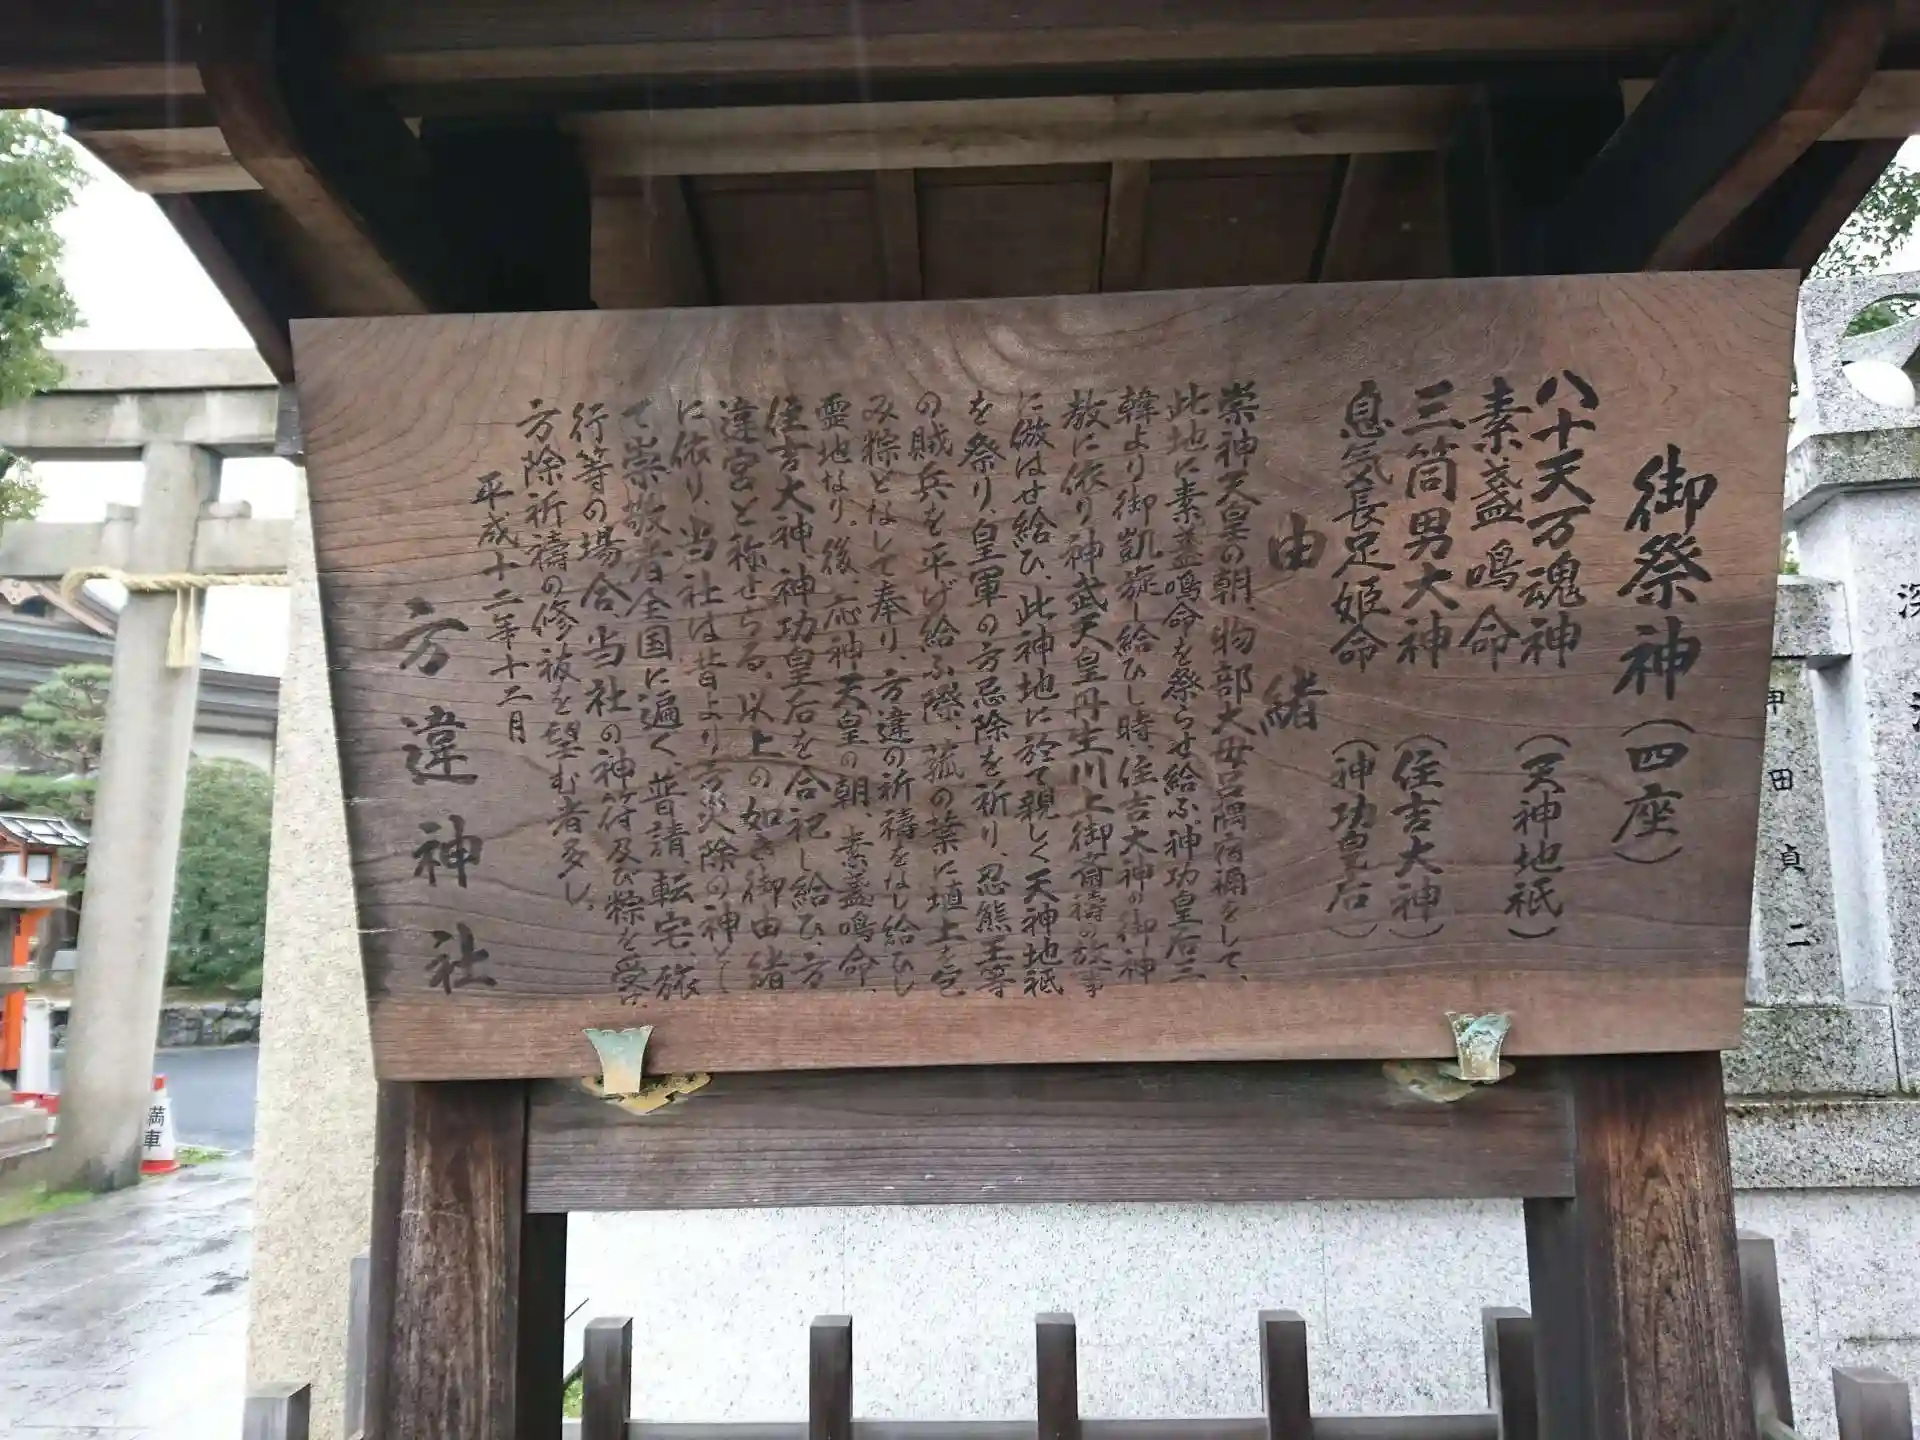 御祭神(四座)
八十天万魂神(天神地祇)
素盞鳴命
三筒男大神(住吉大神)
息気長足姫命(神功皇后)
由緒
崇神天皇の朝、物部大母呂隅宿禰をして、
此地に素盞鳴命を祭らせ給ふ。神功皇后三
韓より御凱旋し給ひし時、住吉大神の御神
教に依り神武天皇丹生川上御斎祷の故事
に倣はせ給ひ、此神地に於て親しく天神地祇
を祭り、皇軍の方忌除を祈り、忍熊王等
の賊兵を平げ給ふ際、菰の葉に埴土を包
み粽となして奉り、方違の祈祷をなし給ひし
霊地なり。後、応神天皇の朝、素盞鳴命、
住吉大神、神功皇后を合祀し給ひ、方
違宮と称せらる。以上の如き御由緒
に依り、当社は昔より方災除の神とし
て崇敬者全国に遍く、普請、転宅、旅
行等の場合、当社の神符及び粽を受け
方除祈祷の修祓を望む者多し。
平成十二年十二月
方違神社
甲田貞二
深
満車